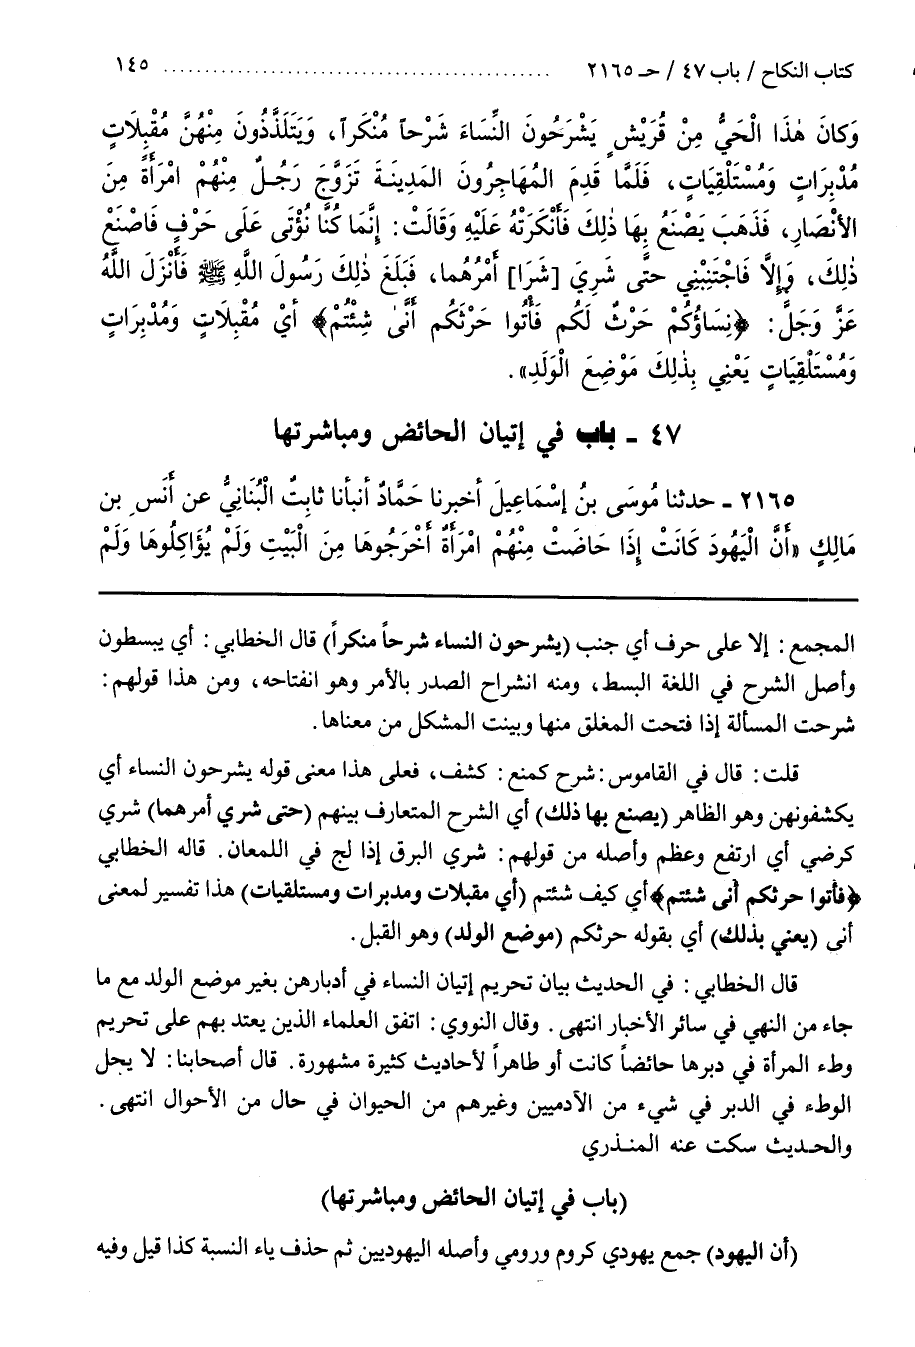 كتاب النكاح / باب ٤٧ / حـ ٢١٦٥ ........................................ ١٤٥
وَكانَ هٰذَا الْحَيُّ مِنْ قُرَيْشٍ يَشْرَحُونَ النِّسَاءَ شَرْحاً مُنْكَراً، وَيَتَلَذَّذُونَ مِنْهُنَّ مُقْبِلَاتٍ
مُدْبِرَاتٍ وَمُسْتَلْقِيَاتٍ، فَلَمَّا قَدِمَ المُهَاجِرُونَ المَدِينَةَ تَزَوَّجَ رَجُلٌ مِنْهُمْ امْرَأَةً مِنَ
الأنْصَارِ، فَذَهَبَ يَصْنَعُ بِهَا ذٰلِكَ فَأَنْكَرَتْهُ عَلَيْهِ وَقَالَتْ: إِنَّمَا كُنَّا نُؤْتَى عَلَى حَرْفٍ فَاصْنَعْ
ذٰلِكَ، وَإِلَّا فَاجْتَنِبْنِي حتَّى شَرِيَ [شَرَا] أَمْرُهُما، فَبَلَغَ ذٰلِكَ رَسُولَ اللَّهِ ﷺ فَأَنْزَلَ اللَّهُ
عَزَّ وَجَلَّ: ﴿نِسَاؤُكُمْ حَرْثٌ لَكُم فَأْتُوا حَرْثَكُم أَنَّىٰ شِئْتُمْ﴾ أيْ مُقْبِلَاتٍ وَمُدْبِرَاتٍ
وَمُسْتَلْقِيَاتٍ يَعْنِي بِذٰلِكَ مَوْضِعَ الْوَلَدِ».
٤٧ - باب في إتيان الحائض ومباشرتها
٢١٦٥ - حدثنا مُوسَى بنُ إسْمَاعِيلَ أخبرنا حَمَّادٌ أنبأنا ثابتٌ الْبُنَانِيُّ عن أَنَسِ بن
مَالِكٍ «أَنَّ الْيَهُودَ كَانَتْ إِذَا حَاضَتْ مِنْهُمْ امْرَأَةٌ أَخْرَجُوهَا مِنَ الْبَيْتِ وَلَمْ يُؤَاكِلُوهَا وَلَمْ
المجمع: إلا على حرف أي جنب (يشرحون النساء شرحاً منكراً) قال الخطابي: أي يبسطون
وأصل الشرح في اللغة البسط، ومنه انشراح الصدر بالأمر وهو انفتاحه، ومن هذا قولهم:
شرحت المسألة إذا فتحت المغلق منها وبينت المشكل من معناها.
قلت: قال في القاموس: شرح كمنع: كشف، فعلى هذا معنى قوله يشرحون النساء أي
يكشفونهن وهو الظاهر (يصنع بها ذلك) أي الشرح المتعارف بينهم (حتى شري أمرهما) شري
كرضي أي ارتفع وعظم وأصله من قولهم: شري البرق إذا لج في اللمعان. قاله الخطابي
﴿فأتوا حرثكم أنى شئتم﴾ أي كيف شئتم (أي مقبلات ومدبرات ومستلقيات) هذا تفسير لمعنى
أنى (يعني بذلك) أي بقوله حرثكم (موضع الولد) وهو القبل.
قال الخطابي: في الحديث بيان تحريم إتيان النساء في أدبارهن بغير موضع الولد مع ما
جاء من النهي في سائر الأخبار انتهى. وقال النووي: اتفق العلماء الذين يعتد بهم على تحريم
وطء المرأة في دبرها حائضاً كانت أو طاهراً لأحاديث كثيرة مشهورة. قال أصحابنا: لا يحل
الوطء في الدبر في شيء من الآدميين وغيرهم من الحيوان في حال من الأحوال انتهى.
والحديث سكت عنه المنذري
(باب في إتيان الحائض ومباشرتها)
(أن اليهود) جمع يهودي كروم ورومي وأصله اليهوديين ثم حذف ياء النسبة كذا قيل وفيه